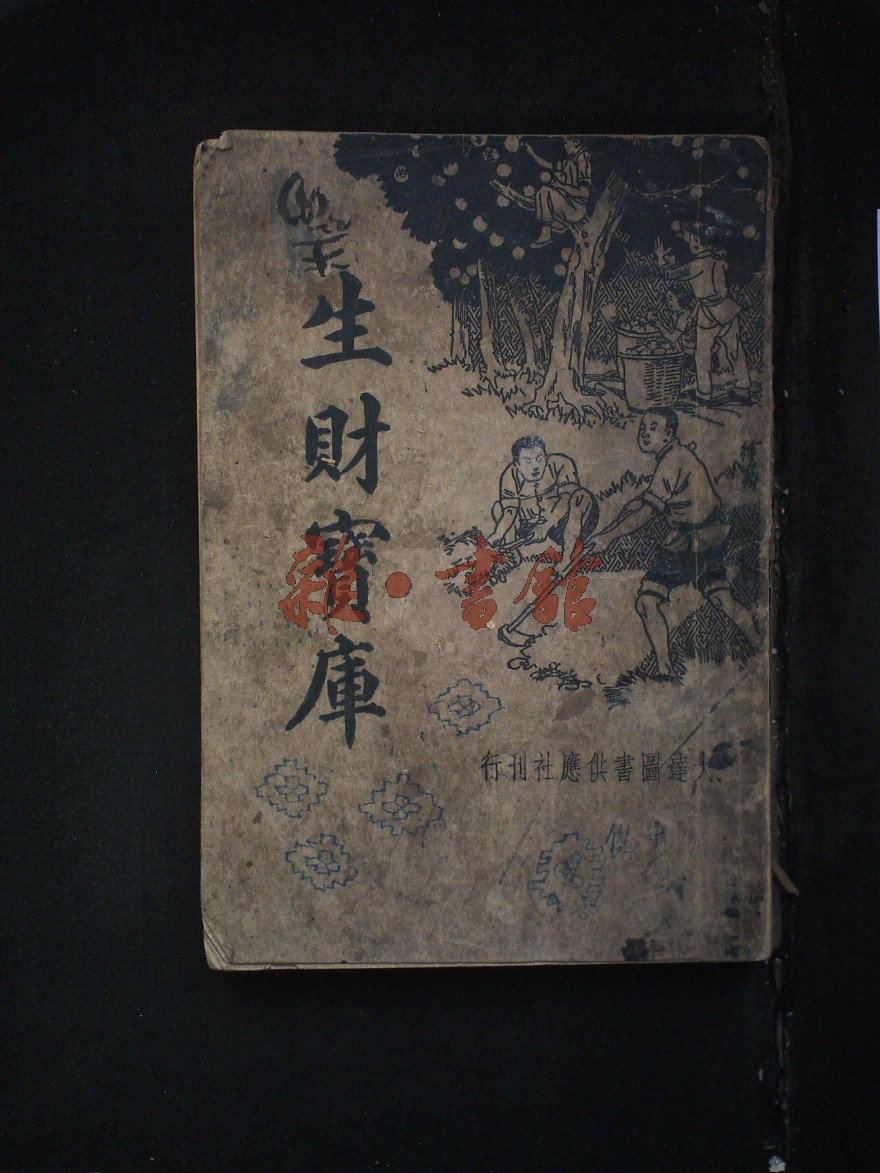 生財寶庫
大達圖書供應社刊行
籟·書館